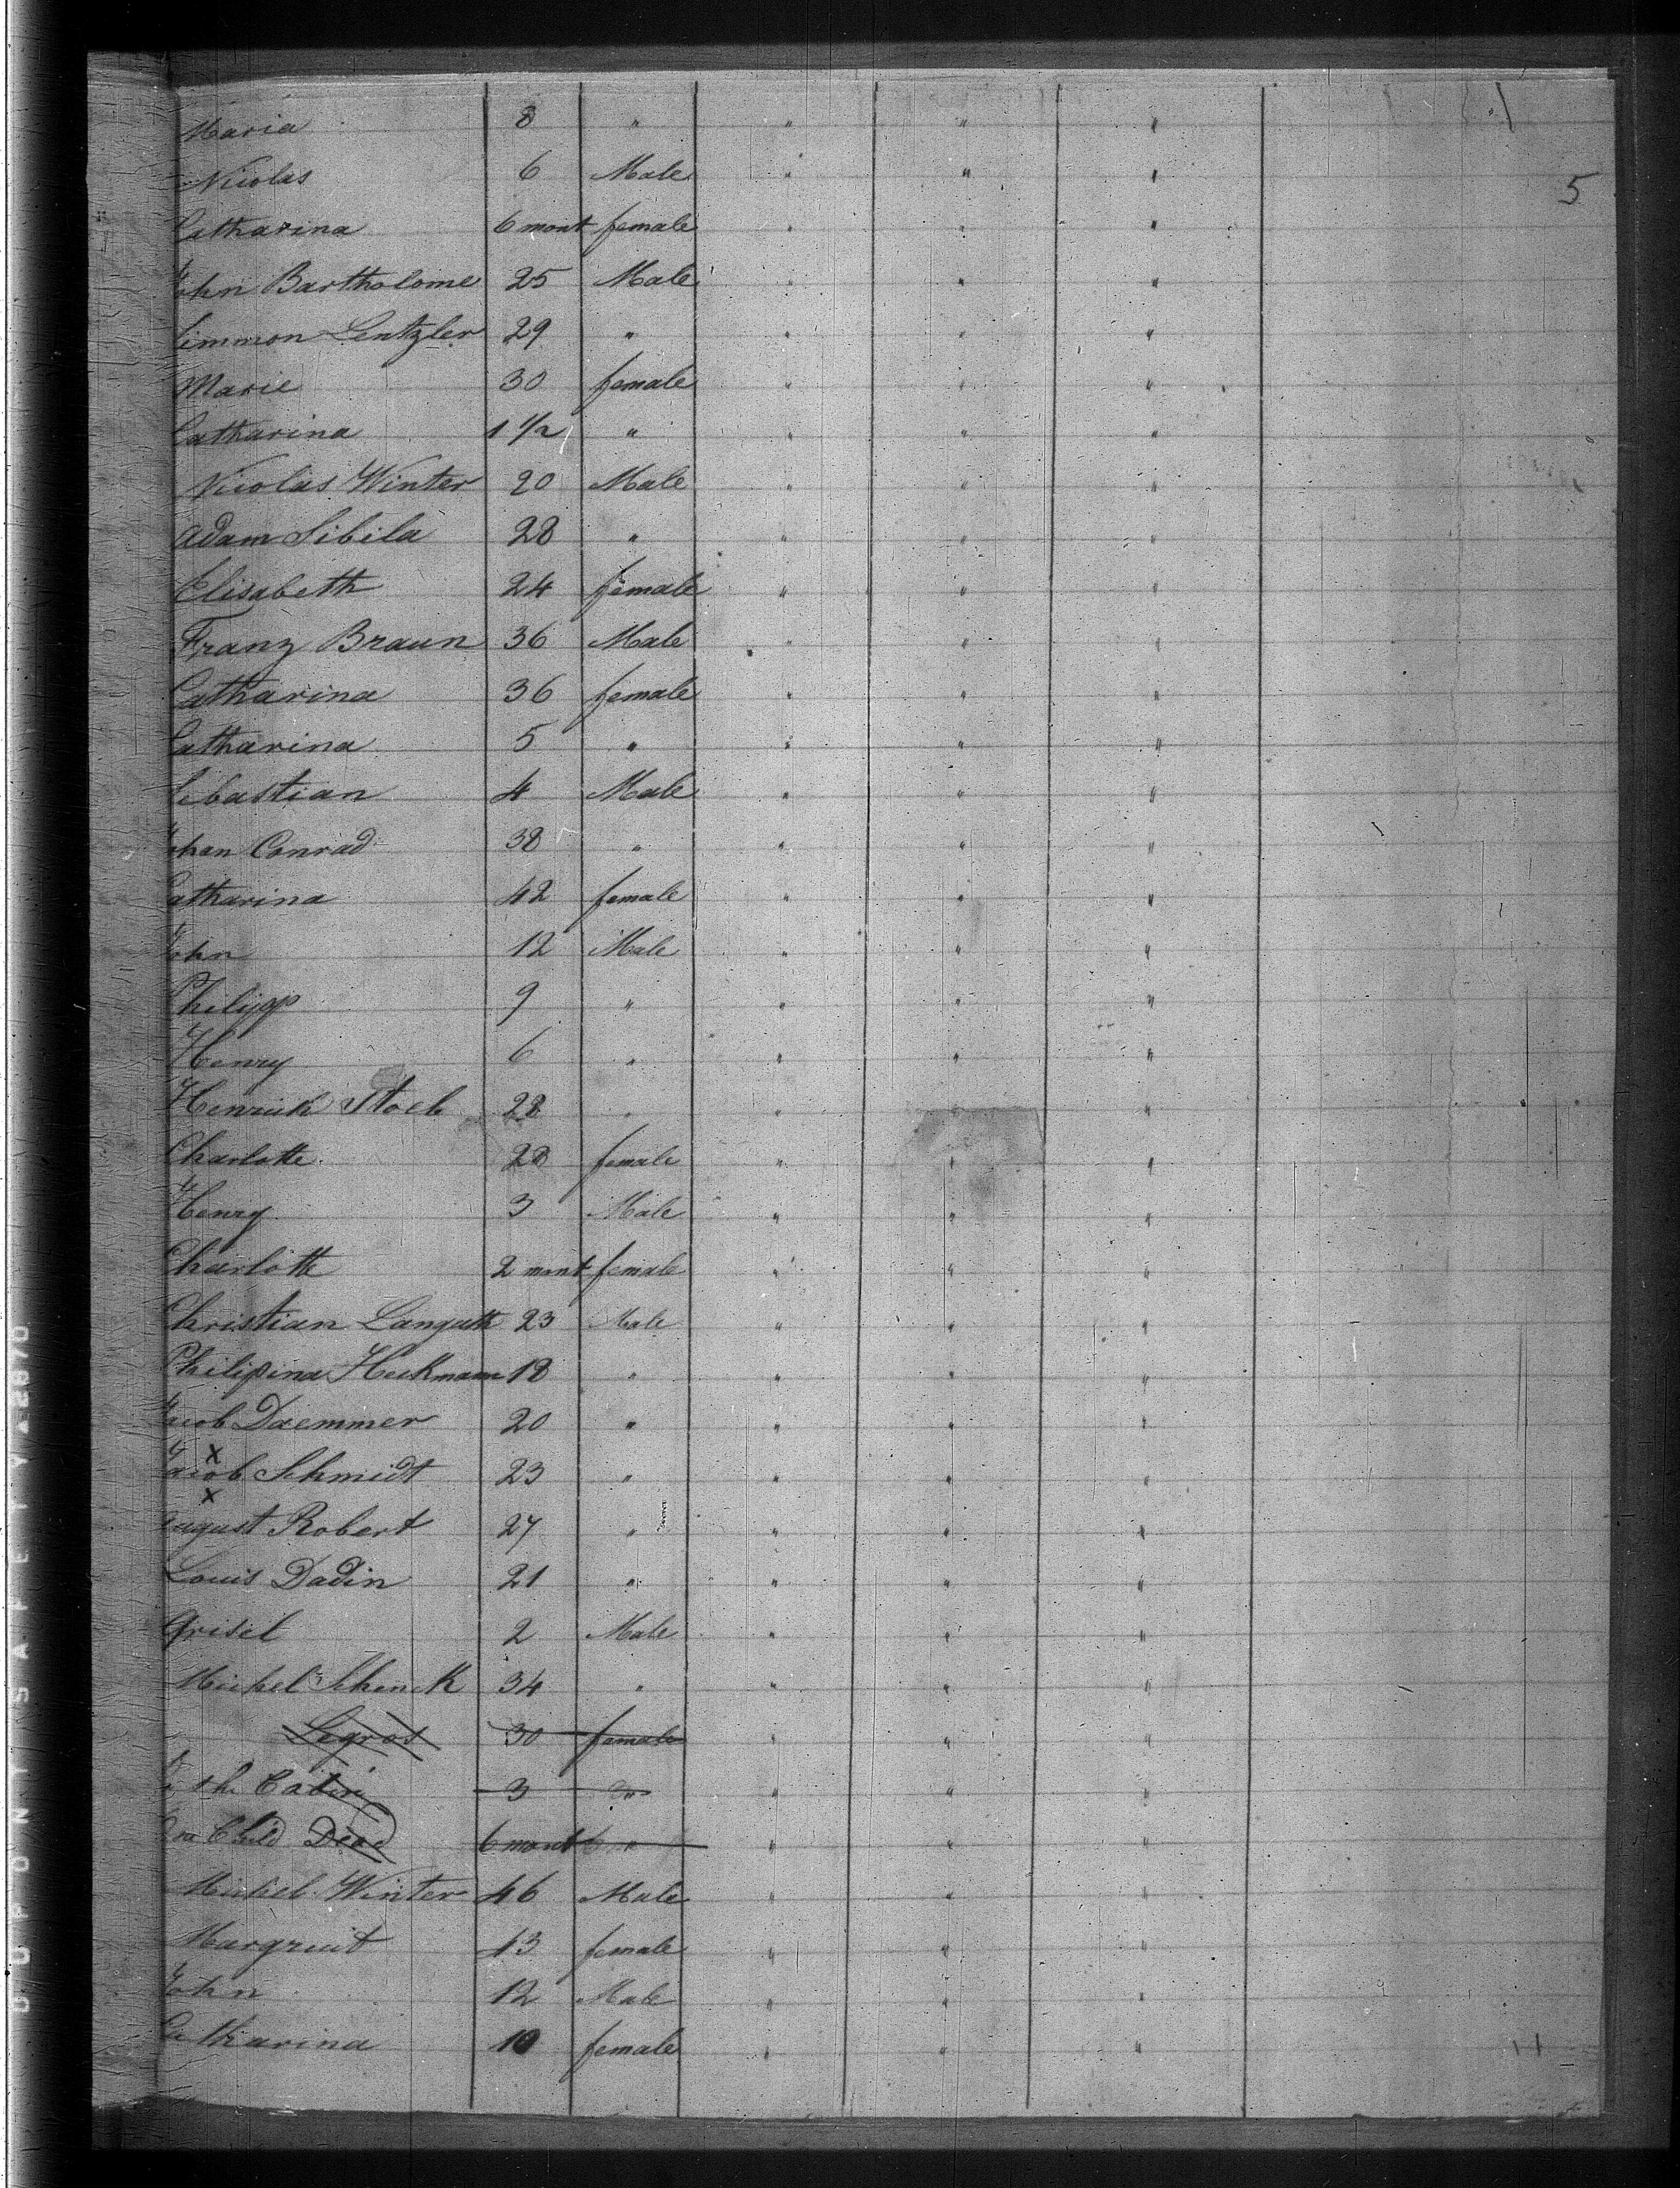 Maria 8 " " " "
5
Nicolas 6 Male " " "
Catharina 6 mont female " " "
John Bartholome 25 Male " " "
Simmon Lentzler 29 " " " "
Marie 30 female " " "
Catharina 1 1/2 " " " "
Nicolas Winter 20 Male " " "
Adam Sibila 28 " " " "
Elisabeth 24 female " " "
Franz Braun 36 Male " " "
Catharina 36 female " " "
Catharina 5 " " " "
Sebastian 4 Male " " "
Johan Conrad 38 " " " "
Catharina 42 female " " "
John 12 Male " " "
Philipp 9 " " " "
Henry 6 " " " "
Henrick Stoeb 28 " " " "
Charlotte 28 female " " "
Henry 3 Male " " "
Charlotte 2 mont female " " "
Christian Langath 23 Male " " "
Philipina Heckmann 18 " " " "
Jacob Daemmer 20 " " " "
x
Jacob Schmidt 23 " " " "
x
August Robert 27 " " " "
Louis Dadin 21 " " " "
Grisel 2 Male " " "
Michel Schenck 34 " " " "
Legros 30 female " " "
3 " " " "
Child Dead 6 mont " " " "
Michel Winter 46 Male " " "
Margreit 13 female " " "
John 12 Male " " "
Catharina 10 female " " "